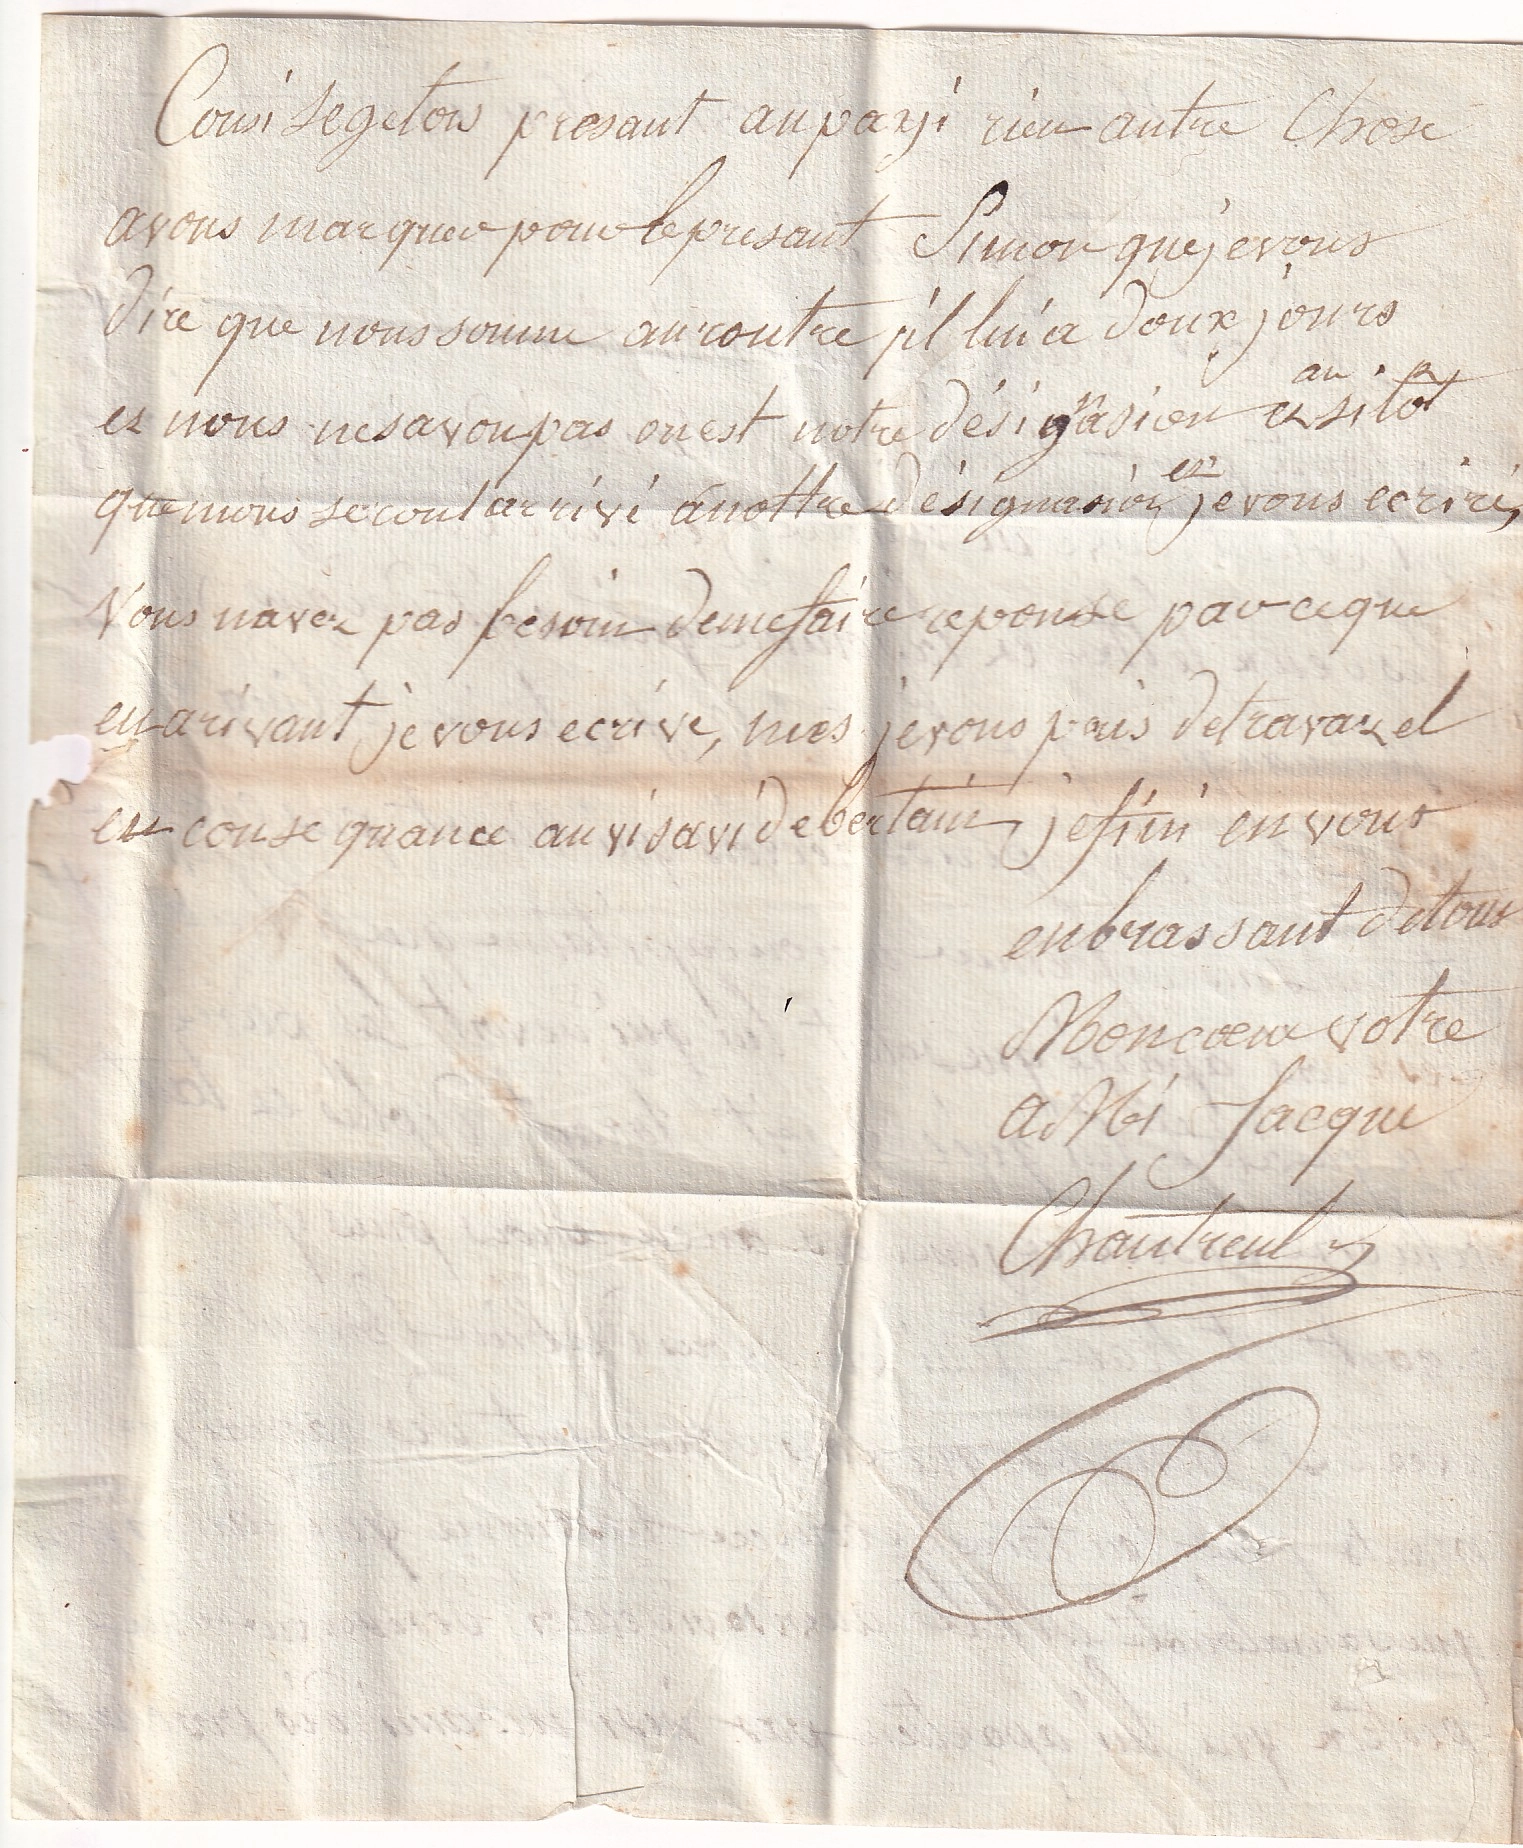 Comsi segetow presant aupayi rien autre Chose
avous marquer pour le presant Simon que je vous
dire que nous somme anroutre jil lui a doux jours
et nous nesavonpas ou est notre désignasion ausitot
que nous seront arrivé a nottre désignasion et je vous ecriré,
Vous navez pas besoin demefaire reponse par ceque
en arivant je vous ecrive, mes je vous pris detravaz el
en conse quance auvisavi debertain, jefini en vous
enbrassant detous
Moncoeur votre
aMi Jacque
Chantreul